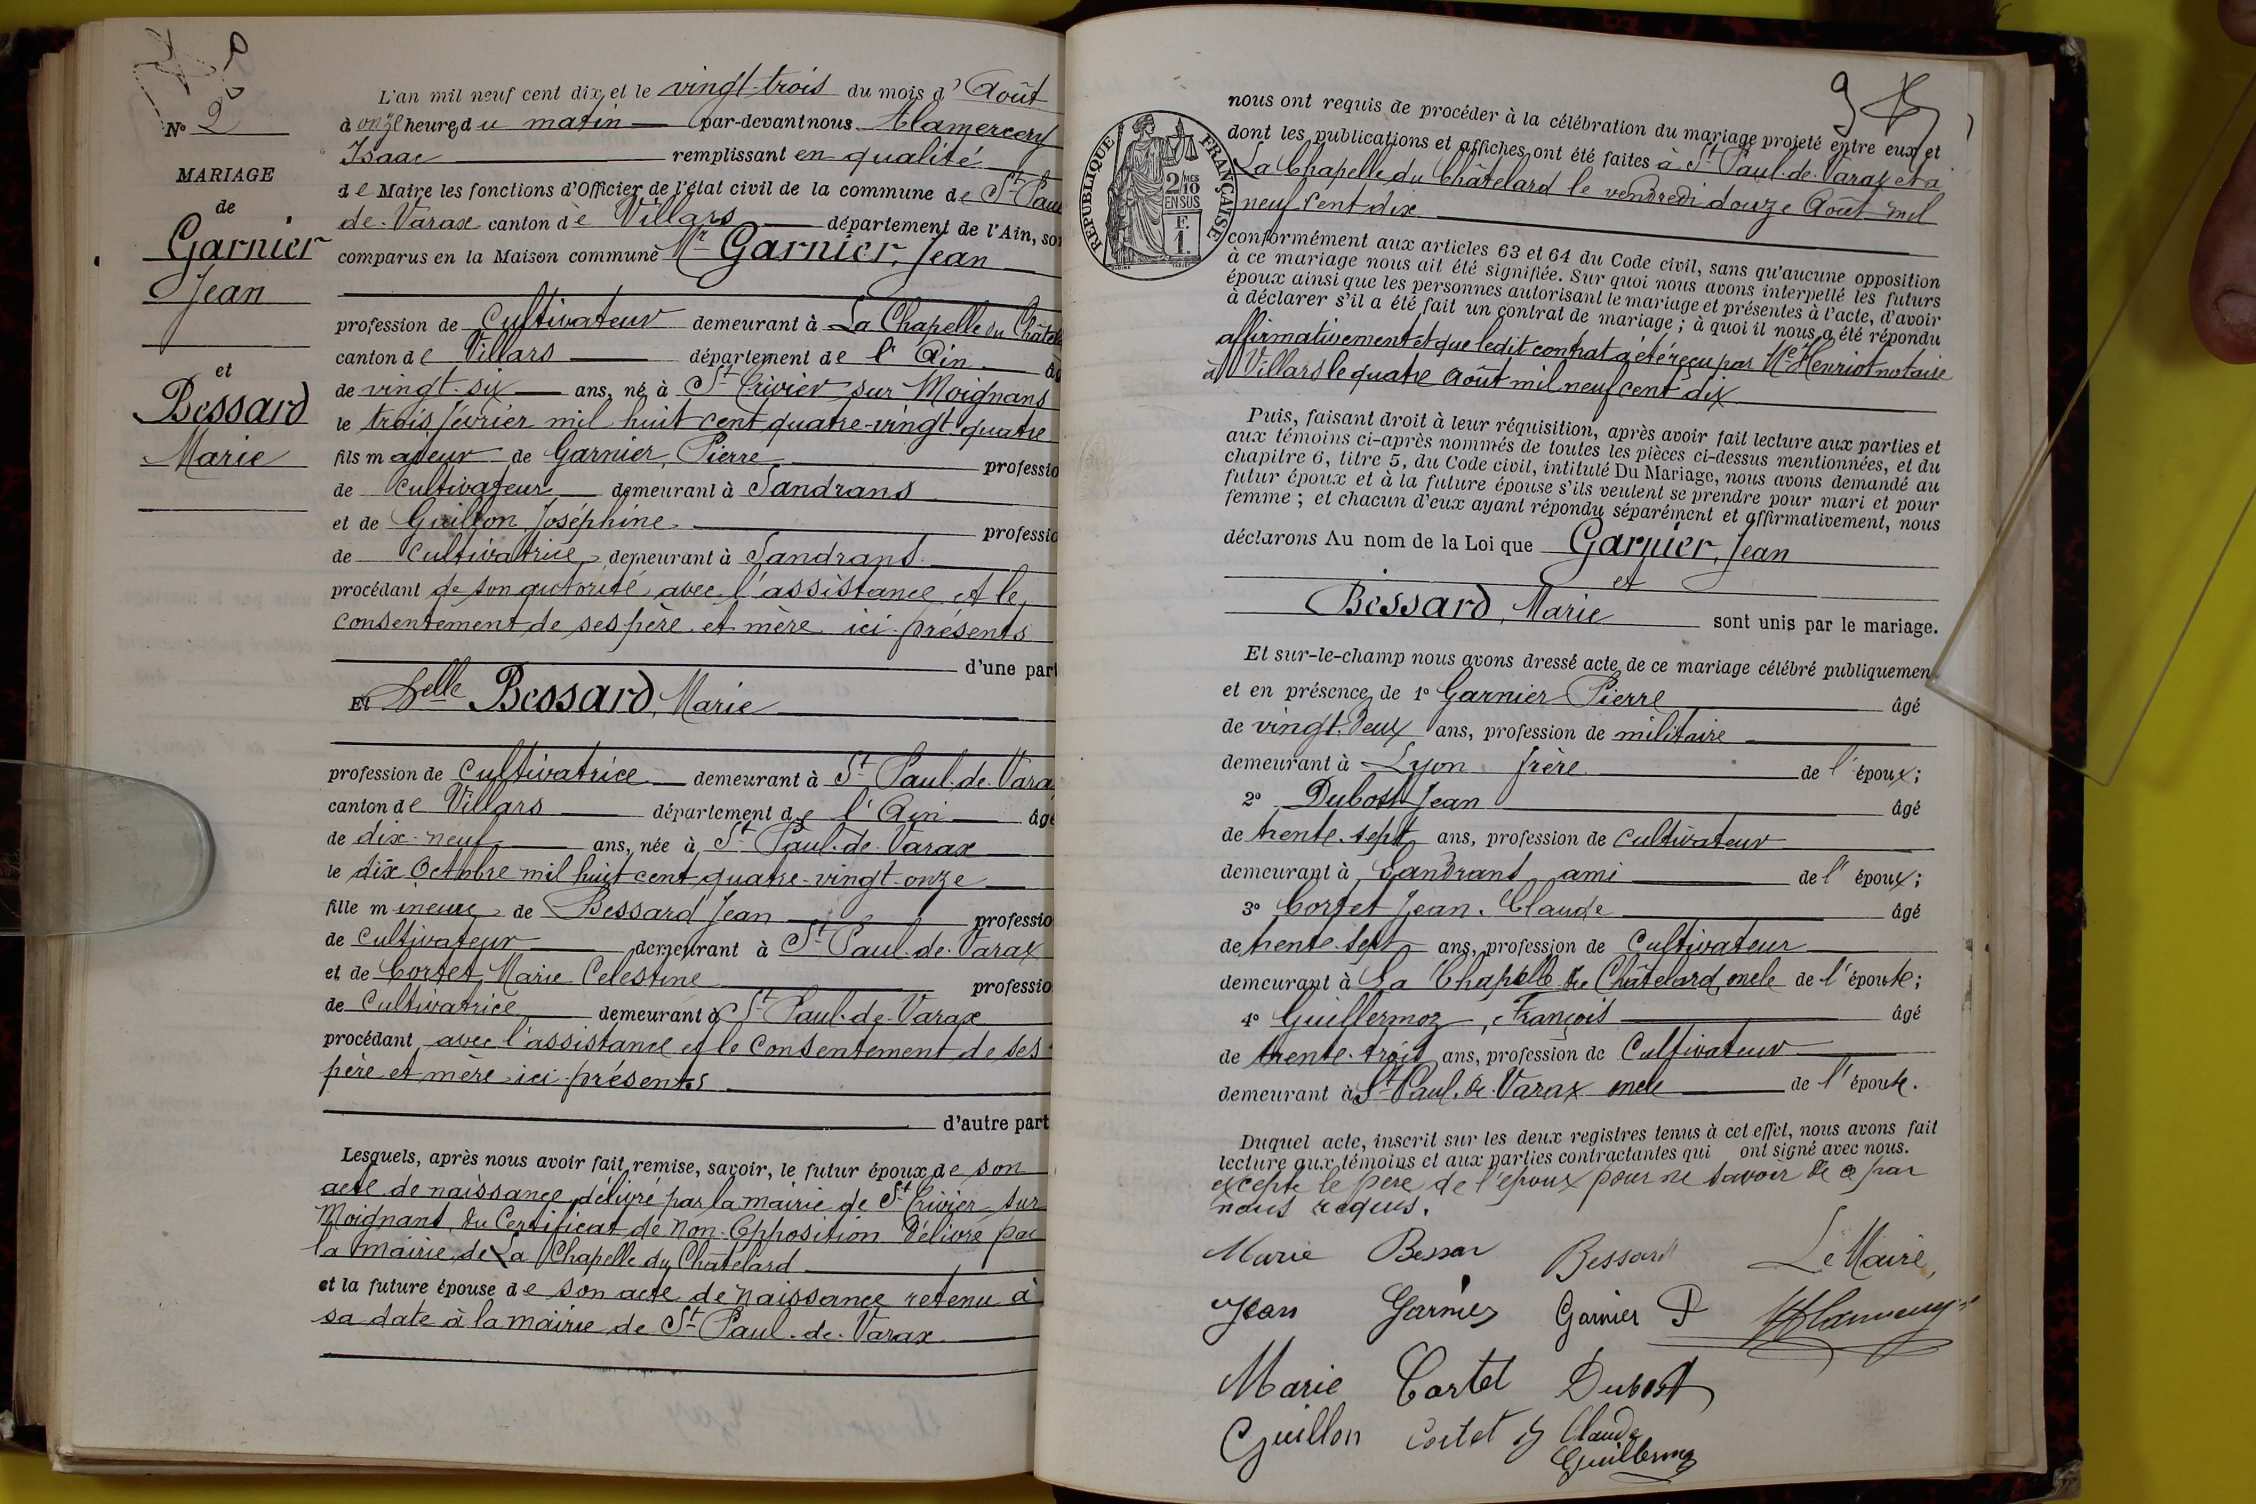 N° 2
MARIAGE
de
Garnier
Jean
et
Bessard
Marie
L'an mil neuf cent dix et le vingt-trois du mois d'Août
à onze heures du matin par-devant nous
Isaac remplissant en qualité
de Maire les fonctions d'Officier de l'état civil de la commune de St Paul
de-Varax canton de Villars département de l'Ain, son
comparus en la Maison commune Mr Garnier, Jean
profession de cultivateur demeurant à La Chapelle du Châtel
canton de Villars département de l'Ain âg
de vingt-six ans, né à St Trivier sur Moignans
le trois février mil huit cent quatre-vingt-quatre
fils majeur de Garnier, Pierre professio
de cultivateur demeurant à Sandrans
et de Guillon Joséphine professio
de cultivatrice demeurant à Sandrans
procédant de son autorité avec l'assistance et le
consentement de ses père et mère ici présents
d'une part
Et Delle Bessard, Marie
profession de cultivatrice demeurant à St Paul-de-Vara
canton de Villars département de l'Ain âgé
de dix-neuf ans, née à St Paul-de-Varax
le dix Octobre mil huit cent quatre-vingt-onze
fille mineure de Bessard Jean professio
de cultivateur demeurant à St Paul-de-Varax
et de Cortet, Marie Celestine professio
de cultivatrice demeurant à St Paul-de-Varax
procédant avec l'assistance et le consentement de ses
père et mère ici présents
d'autre part
Lesquels, après nous avoir fait remise, savoir, le futur époux de son
acte de naissance délivré par la mairie de St Trivier sur
Moignans, du Certificat de Non-Opposition délivré par
la mairie de La Chapelle du Châtelard
et la future épouse de son acte de naissance retenu à
sa date à la mairie de St Paul-de-Varax
9
RÉPUBLIQUE FRANÇAISE
2/10
EN SUS
F.
1.
nous ont requis de procéder à la célébration du mariage projeté entre eux et
dont les publications et affiches ont été faites à St Paul-de-Varax et à
La Chapelle du Châtelard le vendredi douze Août mil
neuf cent dix
conformément aux articles 63 et 64 du Code civil, sans qu'aucune opposition
à ce mariage nous ait été signifiée. Sur quoi nous avons interpellé les futurs
époux ainsi que les personnes autorisant le mariage et présentes à l'acte, d'avoir
à déclarer s'il a été fait un contrat de mariage ; à quoi il nous a été répondu
affirmativement et que ledit contrat a été reçu par Me Henriot notaire
à Villars le quatre Août mil neuf cent dix
Puis, faisant droit à leur réquisition, après avoir fait lecture aux parties et
aux témoins ci-après nommés de toutes les pièces ci-dessus mentionnées, et du
chapitre 6, titre 5, du Code civil, intitulé Du Mariage, nous avons demandé au
futur époux et à la future épouse s'ils veulent se prendre pour mari et pour
femme ; et chacun d'eux ayant répondu séparément et affirmativement, nous
déclarons Au nom de la Loi que Garnier, Jean
et
Bessard, Marie sont unis par le mariage.
Et sur-le-champ nous avons dressé acte de ce mariage célébré publiquemen
et en présence de 1° Garnier Pierre âgé
de vingt-deux ans, profession de militaire
demeurant à Lyon frère de l'époux ;
2° Dubost Jean âgé
de trente-sept ans, profession de cultivateur
demeurant à Sandrans ami de l'époux ;
3° Cortet Jean-Claude âgé
de trente-sept ans, profession de Cultivateur
demeurant à La Chapelle du Châtelard, oncle de l'épouse ;
4° Guillermoz, François âgé
de trente-trois ans, profession de Cultivateur
demeurant à St Paul-de-Varax oncle de l'épouse.
Duquel acte, inscrit sur les deux registres tenus à cet effet, nous avons fait
lecture aux témoins et aux parties contractantes qui ont signé avec nous.
excepté le père de l'époux pour ne savoir de ce par
nous requis.
Marie Bessar Bessard Le Maire,
Jean Garnier Garnier P
Marie Cortet Dubost
Guillon Cortet J Claude
Guillermoz